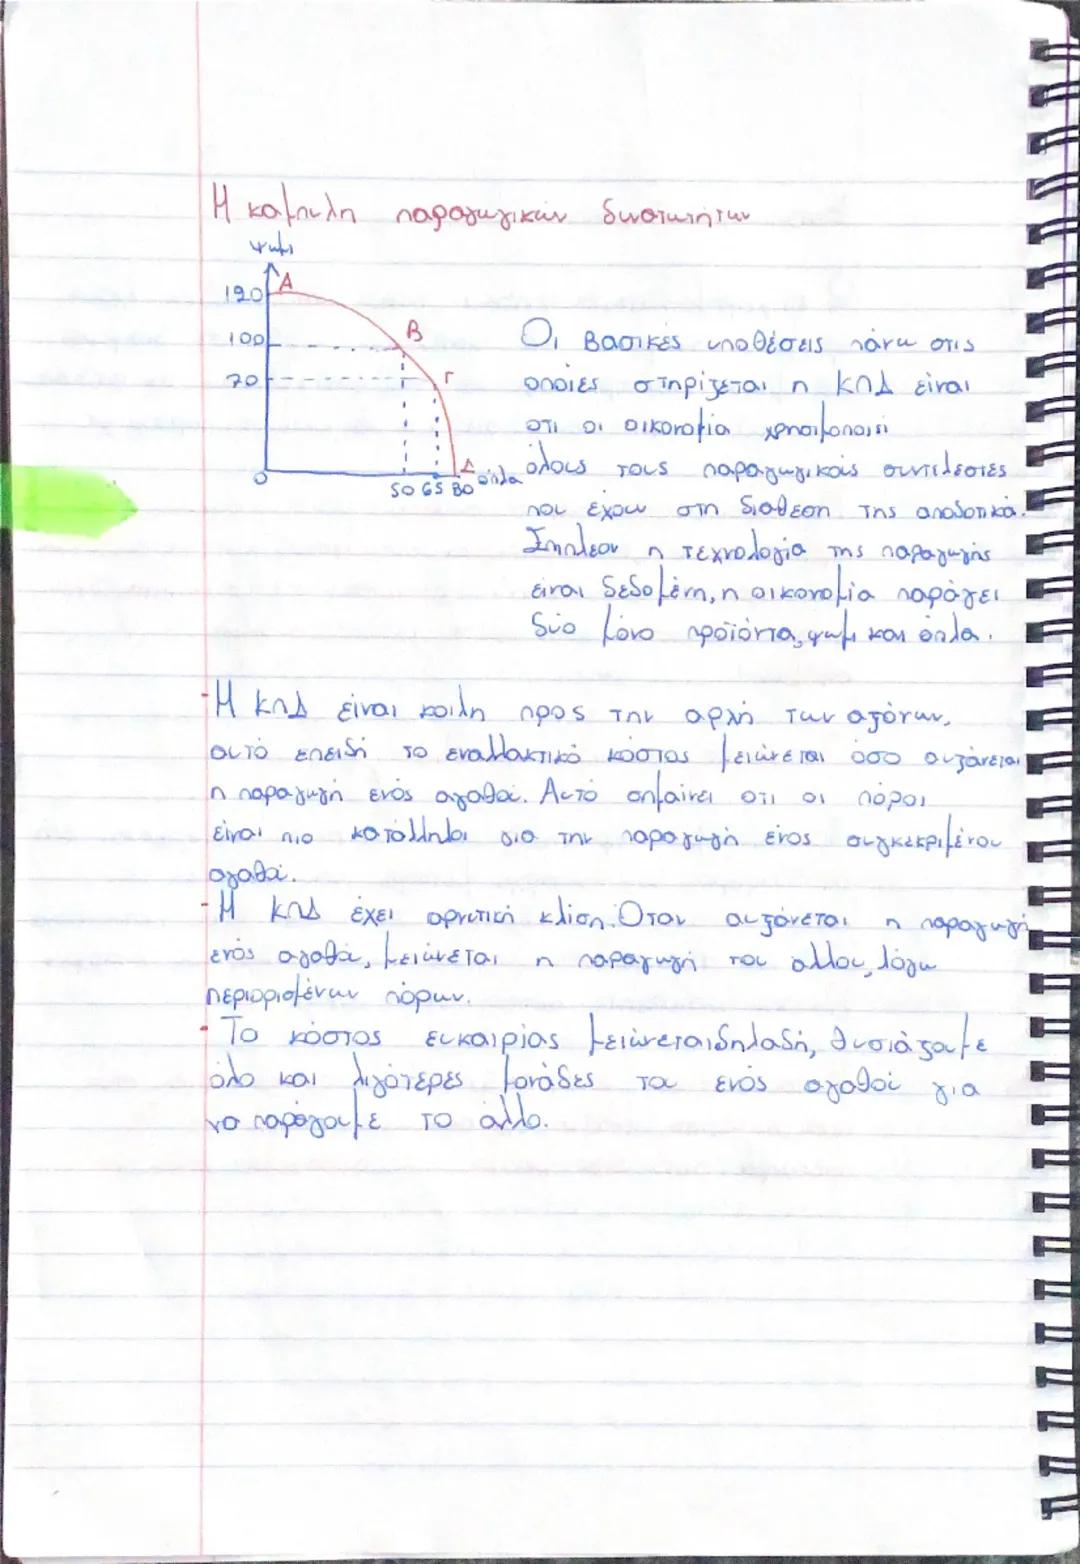 Η καμπυλη παραγωγικών δυνατοτήτων
Ψωμι
120
Α
100
Β
70
Γ
Δ
0
50 65 80 όπλα
Οι βασικές υποθέσεις πάνω στις
οποίες στηρίζεται η ΚΠΔ είναι
οτι οι οικονομία χρησιμοποιεί
όλους τους παραγωγικούς συντελεστές
που έχουν στη διαθεση της αποδοτικά.
Επιπλεον η τεχνολογία της παραγωγής
είναι δεδομένη, η οικονομία παράγει
δύο μόνο προϊόντα, ψωμι και όπλα.
-Η ΚΠΔ είναι κοιλη προς την αρχή των αξόνων,
αυτό επειδή το εναλλακτικό κόστος μειώνεται όσο αυξάνεται
η παραγωγή ενός αγαθού. Αυτό σημαίνει οτι οι πόροι
είναι πιο κατάλληλοι για την παραγωγή ενος συγκεκριμένου
αγαθού.
-Η ΚΠΔ έχει αρνητική κλίση. Όταν αυξάνεται η παραγωγή
ενός αγαθού, μειώνεται η παραγωγή του αλλου, λόγω
περιορισμένων πόρων.
- Το κόστος ευκαιρίας μειώνεται δηλαδή, θυσιάζουμε
όλο και λιγότερες μονάδες του ενός αγαθού για
να παράγουμε το άλλο.